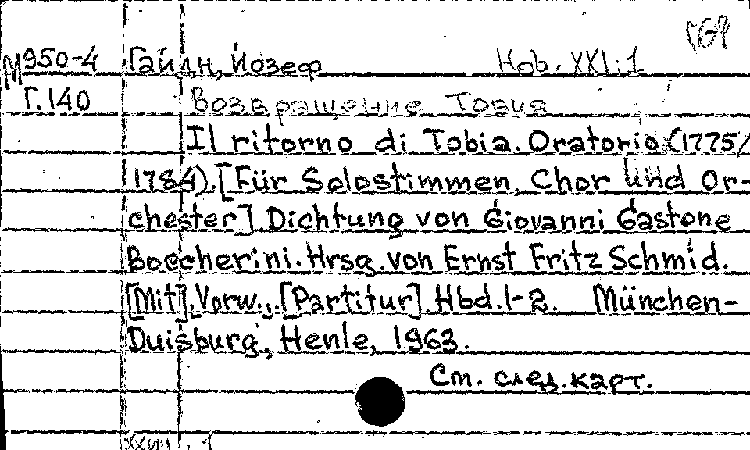 М950-4 Гайдн, Йозеф Hob. XXI:1
Г.140 Возвращение Товия
Il ritorno di Tobia. Oratorio (1775/
1784). [Für Solostimmen, Chor und Or-
chester] Dichtung von Giovanni Gastone
Boccherini. Hrsg. von Ernst Fritz Schmid.
[Mit] Vorw., [Partitur] Hbd. 1-2. München-
Duisburg, Henle, 1963.
См. след. карт.